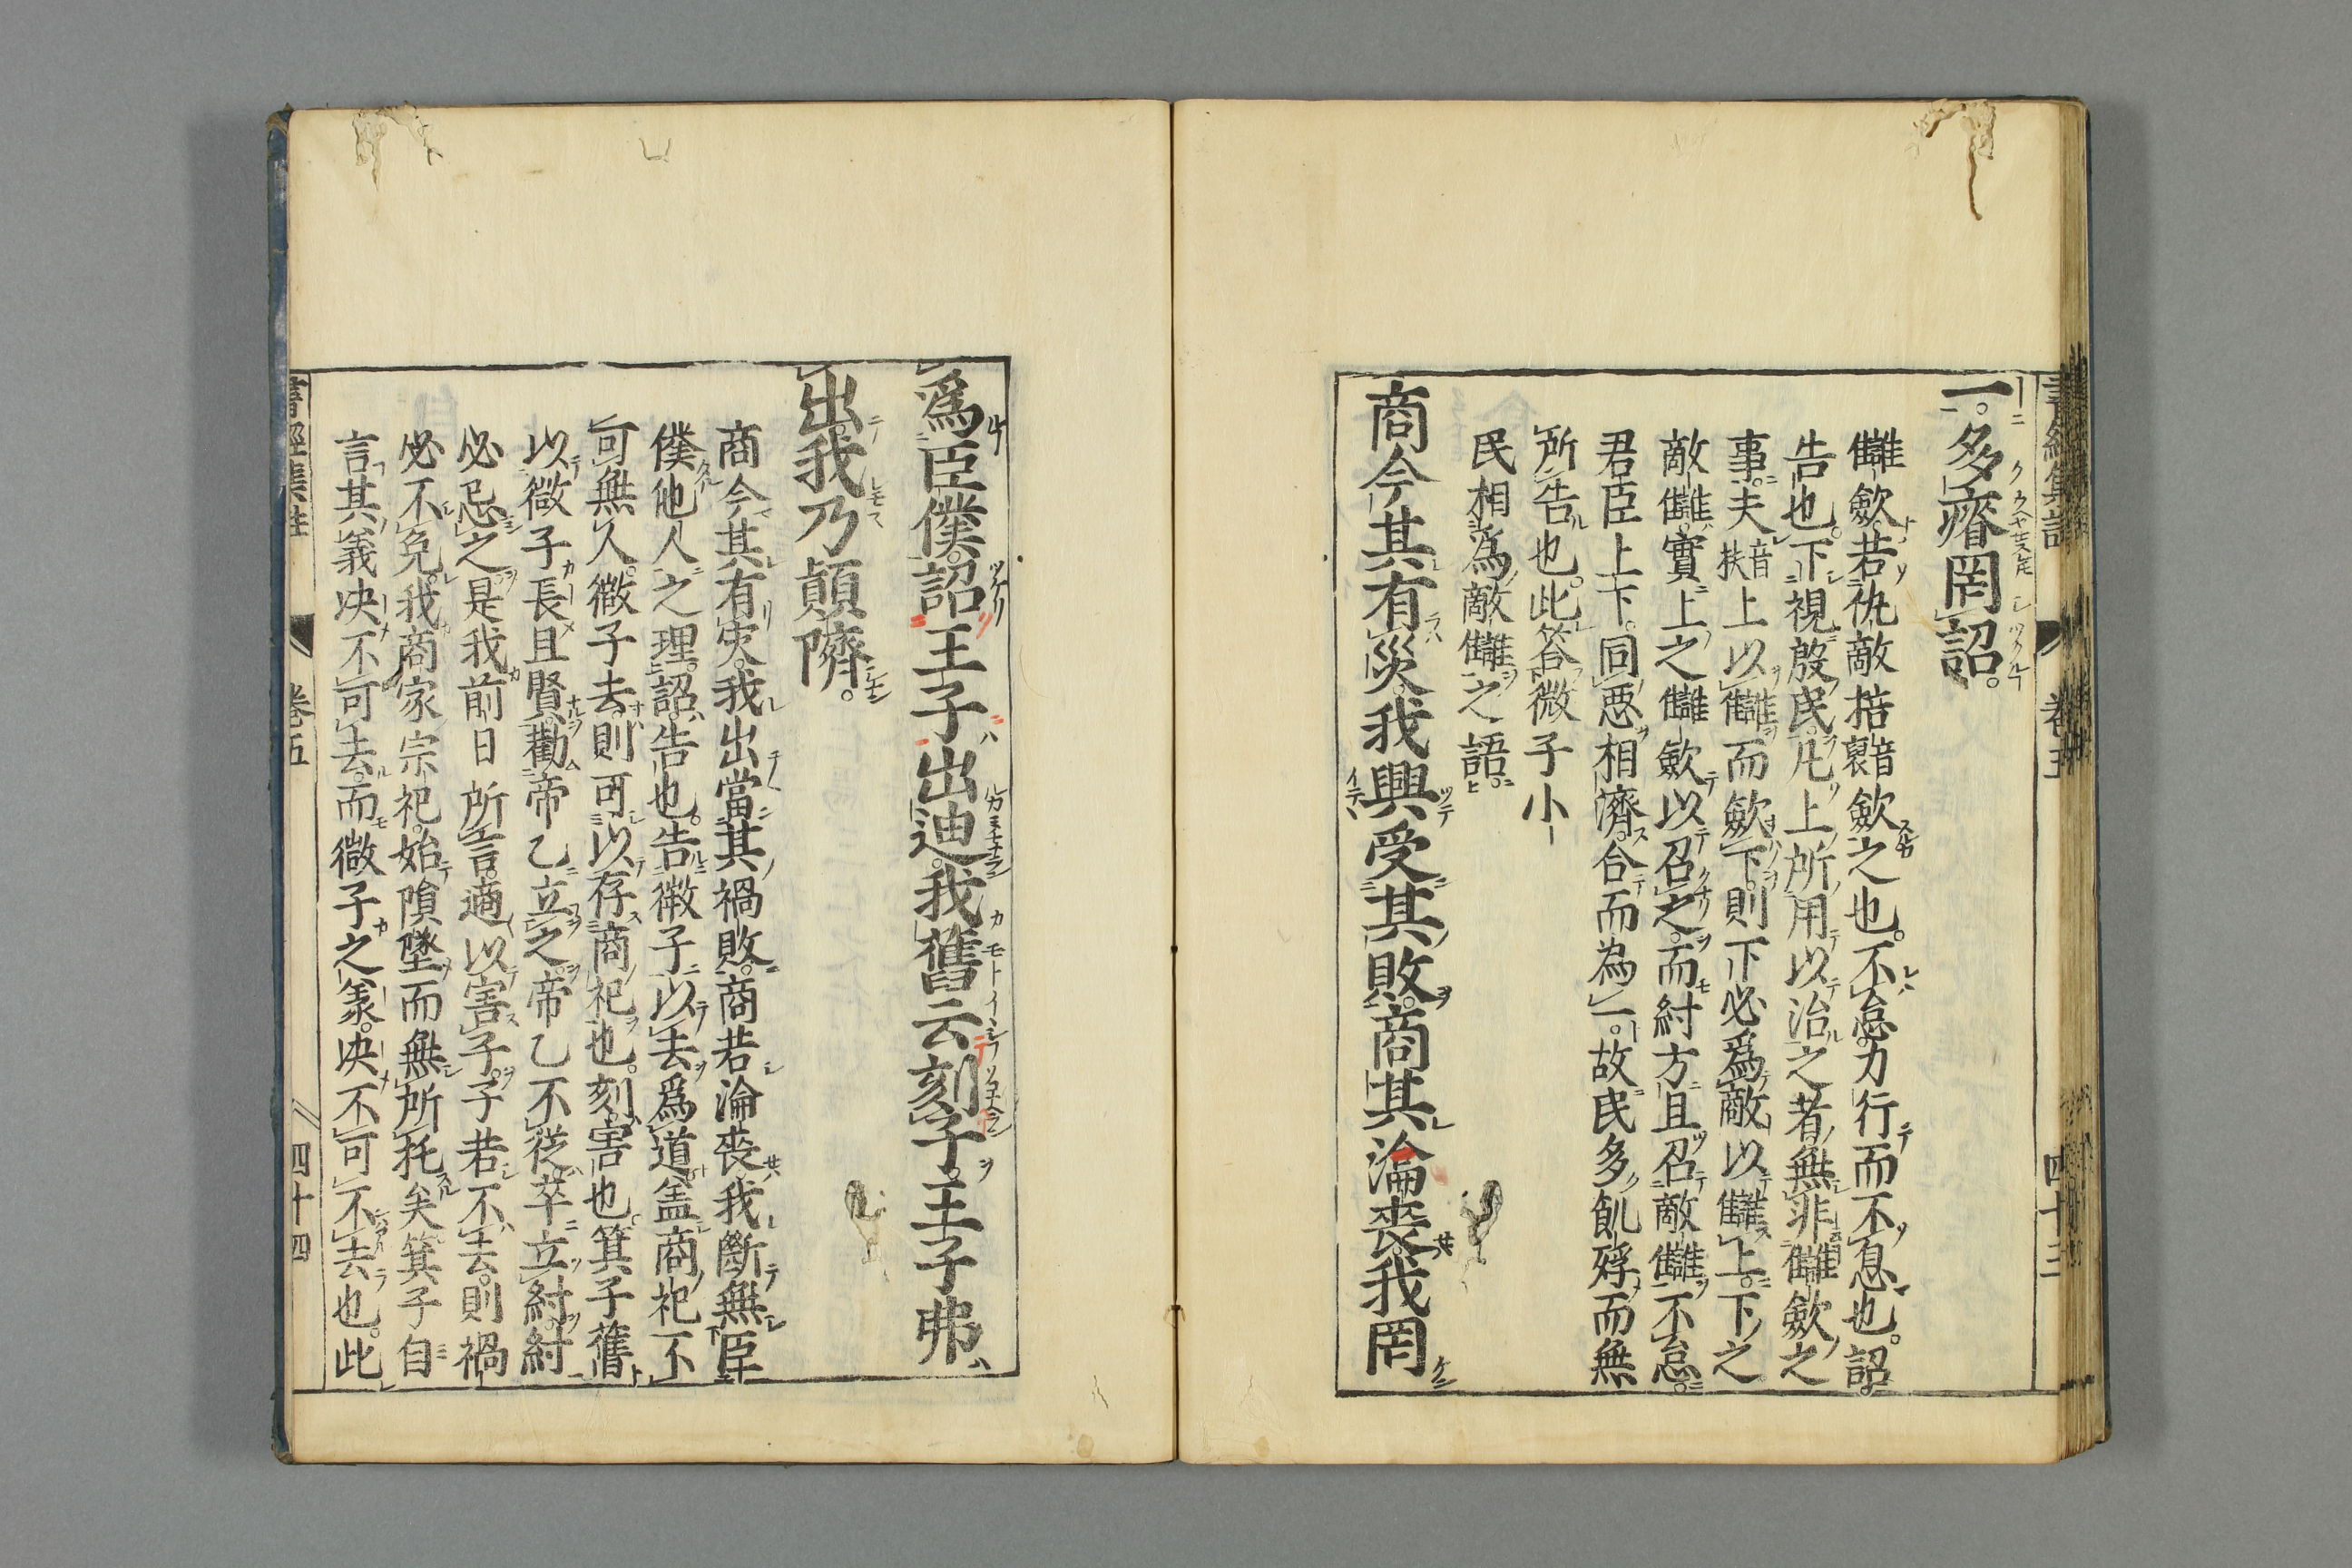 書經集註 卷五 四十三
一。多瘠罔詔。
讎歛。若仇敵掊音裒歛之也。不怠。力行而不息也。詔。
告也。下視殷民。凡上所用以治之者。無非讎歛之
事。夫音扶上以讎而歛下。則下必爲敵以讎上。下之
敵讎。實上之讎歛以召之。而紂方且召敵讎不怠。
君臣上下。同惡相濟。合而為一。故民多飢殍而無
所告也。此答微子小
民相爲敵讎之語。
商今其有災。我興受其敗。商其淪喪。我罔
爲臣僕。詔王子出迪。我舊云刻子。王子弗
出。我乃顛隮。
商今其有灾。我出當其禍敗。商若淪喪我斷無臣
僕他人之理。詔。告也。告微子以去爲道。盖商祀不
可無人。微子去。則可以存商祀也。刻。害也。箕子舊
以微子長且賢。勸帝乙立之。帝乙不從。卒立紂。紂
必忌之。是我前日所言。適以害子。子若不去。則禍
必不免。我商家宗祀。始隕墜而無所托矣。箕子自
言其義決不可去。而微子之義。決不可不去也。此
書經集註 卷五 四十四